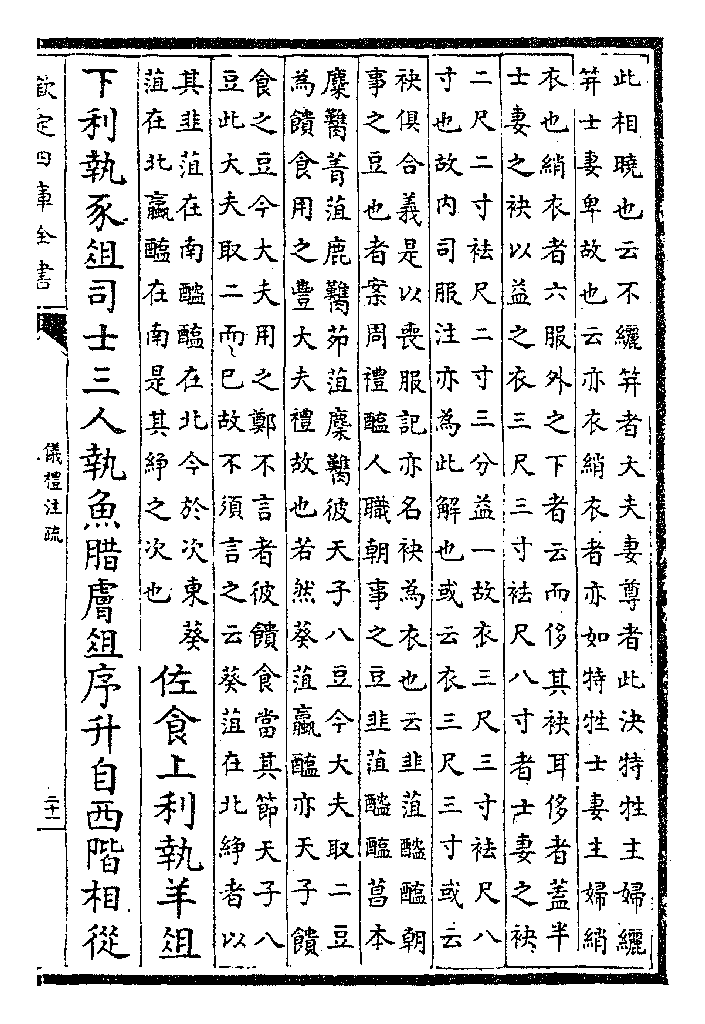 此相曉也云不纚笄者大夫妻尊者此決特牲主婦纚
笄士妻卑故也云亦衣綃衣者亦如特牲士妻主婦綃
衣也綃衣者六服外之下者云而侈其袂耳侈者蓋半
士妻之袂以益之衣三尺三寸袪尺八寸者士妻之袂
二尺二寸袪尺二寸三分益一故衣三尺三寸袪尺八
寸也故內司服注亦為此解也或云衣三尺三寸或云
袂俱合義是以喪服記亦名袂為衣也云韭菹醓醢朝
事之豆也者案周禮醢人職朝事之豆韭菹醓醢菖本
麋臡菁菹鹿臡茆菹麋臡彼天子八豆今大夫取二豆
為饋食用之豐大夫禮故也若然葵菹蠃醢亦天子饋
食之豆今大夫用之鄭不言者彼饋食當其節天子八
豆此大夫取二而已故不須言之云葵菹在北綪者以
其韭菹在南醓醢在北今於次東葵
菹在北蠃醢在南是其綪之次也
佐食上利執羊俎
下利執豕俎司士三人執魚腊膚俎序升自西階相從
欽定四庫全書
儀禮注疏
二十一